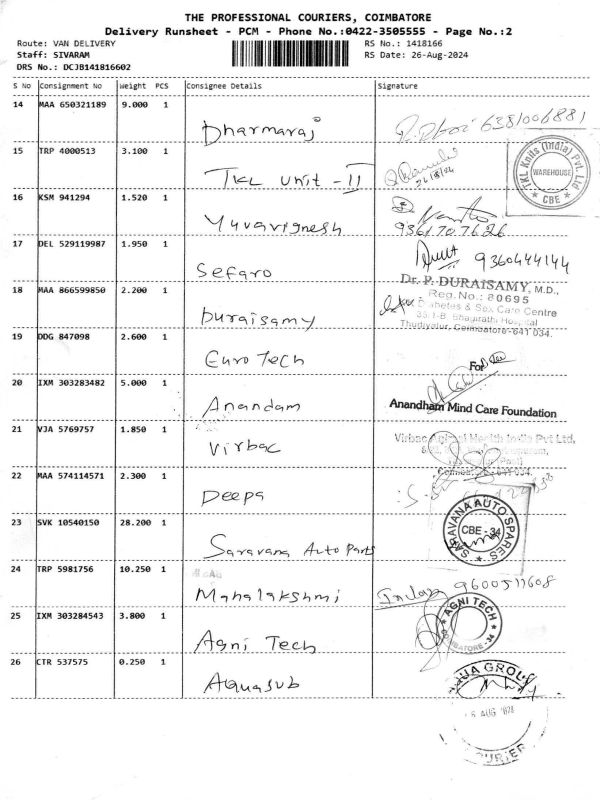 THE PROFESSIONAL COURIERS, COIMBATORE
Delivery Runsheet - PCM - Phone No.:0422-3505555 - Page No.:2
Route: VAN DELIVERY RS No.: 1418166
Staff: SIVARAM RS Date: 26-Aug-2024
DRS No.: DCJB141816602
S No Consignment No Weight PCS Consignee Details Signature
14 MAA 650321189 9.000 1 Dharmaraj 6381006881
15 TRP 4000513 3.100 1 TKL Unit - II 26/8/24
TKL Knits (India) Pvt. Ltd WAREHOUSE * CBE *
16 KSM 941294 1.520 1 Yuvavignesh 9361707626
17 DEL 529119987 1.950 1 Sefaro 9360444144
18 MAA 866599850 2.200 1 Duraisamy
Dr. P. DURAISAMY, M.D.,
Reg.No.: 80695
Diabetes & Sex Care Centre
Bhagirathi Hospital
Thudiyalur, Coimbatore-641 034.
19 DDG 847098 2.600 1 Euro Tech
20 IXM 303283482 5.000 1 Anandam
For
Anandham Mind Care Foundation
21 VJA 5769757 1.850 1 Virbac
Virbac Animal Health India Pvt Ltd,
22 MAA 574114571 2.300 1 Deepa
23 SVK 10540150 28.200 1 Saravana Auto Parts
SARAVANA AUTO SPARES CBE - 34
24 TRP 5981756 10.250 1 Mahalakshmi 9600511608
25 IXM 303284543 3.800 1 Agni Tech
AGNI TECH COIMBATORE-34
26 CTR 537575 0.250 1 Aquasub
AQUA GROUP
AUG